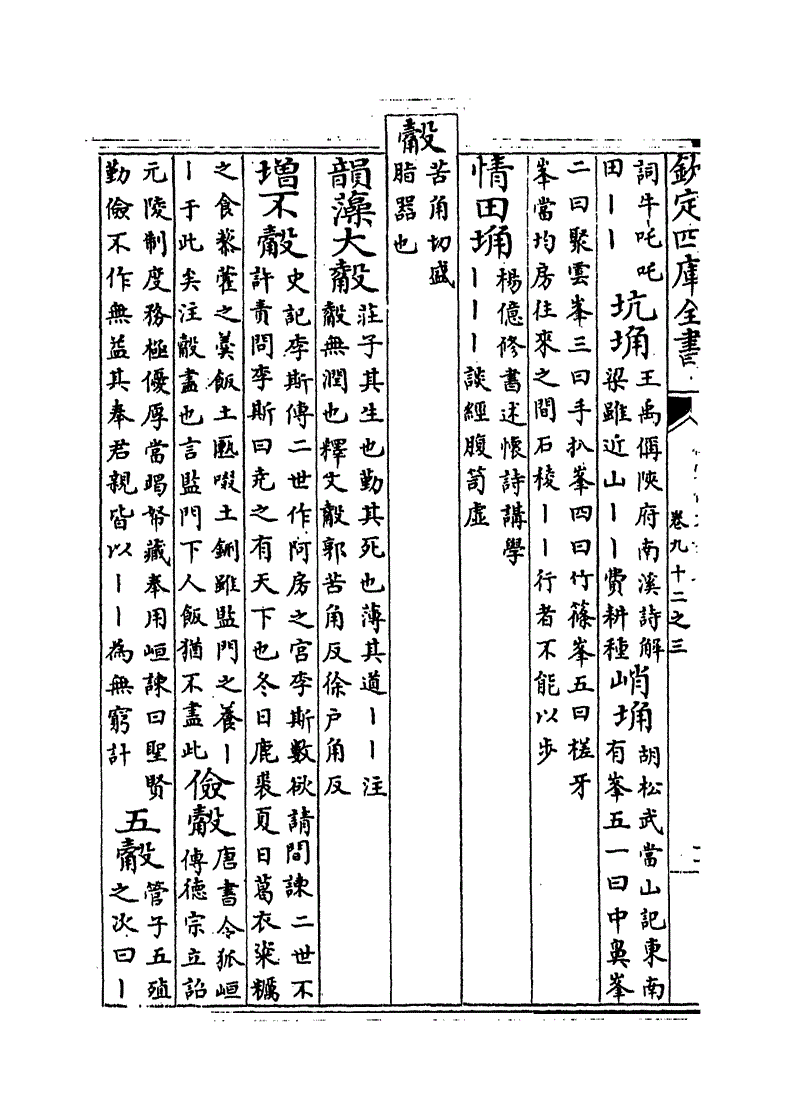 欽定四庫全書
卷九十二之三
詞牛吒吒
田丨丨
坑埆
王禹偁陝府南溪詩解
梁雖近山丨丨費耕種
峭埆
胡松武當山記東南
有峯五一曰中鼻峯
二曰聚雲峯三曰手扒峯四曰竹篠峯五曰槎牙
峯當均房往來之間石稜丨丨行者不能以步
情田埆
楊億修書述懷詩講學
丨丨丨談經腹笥虛
觳
苦角切盛
脂器也
韻藻大觳
莊子其生也勤其死也薄其道丨丨注
觳無潤也釋文觳郭苦角反徐户角反
增不觳
史記李斯傳二世作阿房之宮李斯數欲請間諫二世不
許責問李斯曰堯之有天下也冬日鹿裘夏日葛衣粢糲
之食藜藿之羮飯土匭啜土鉶雖監門之養丨
丨于此矣注觳盡也言監門下人飯猶不盡此
儉觳
唐書令狐峘
傳德宗立詔
元陵制度務極優厚當竭帑藏奉用峘諫曰聖賢
勤儉不作無益其奉君親皆以丨丨為無窮計
五觳
管子五殖
之次曰丨